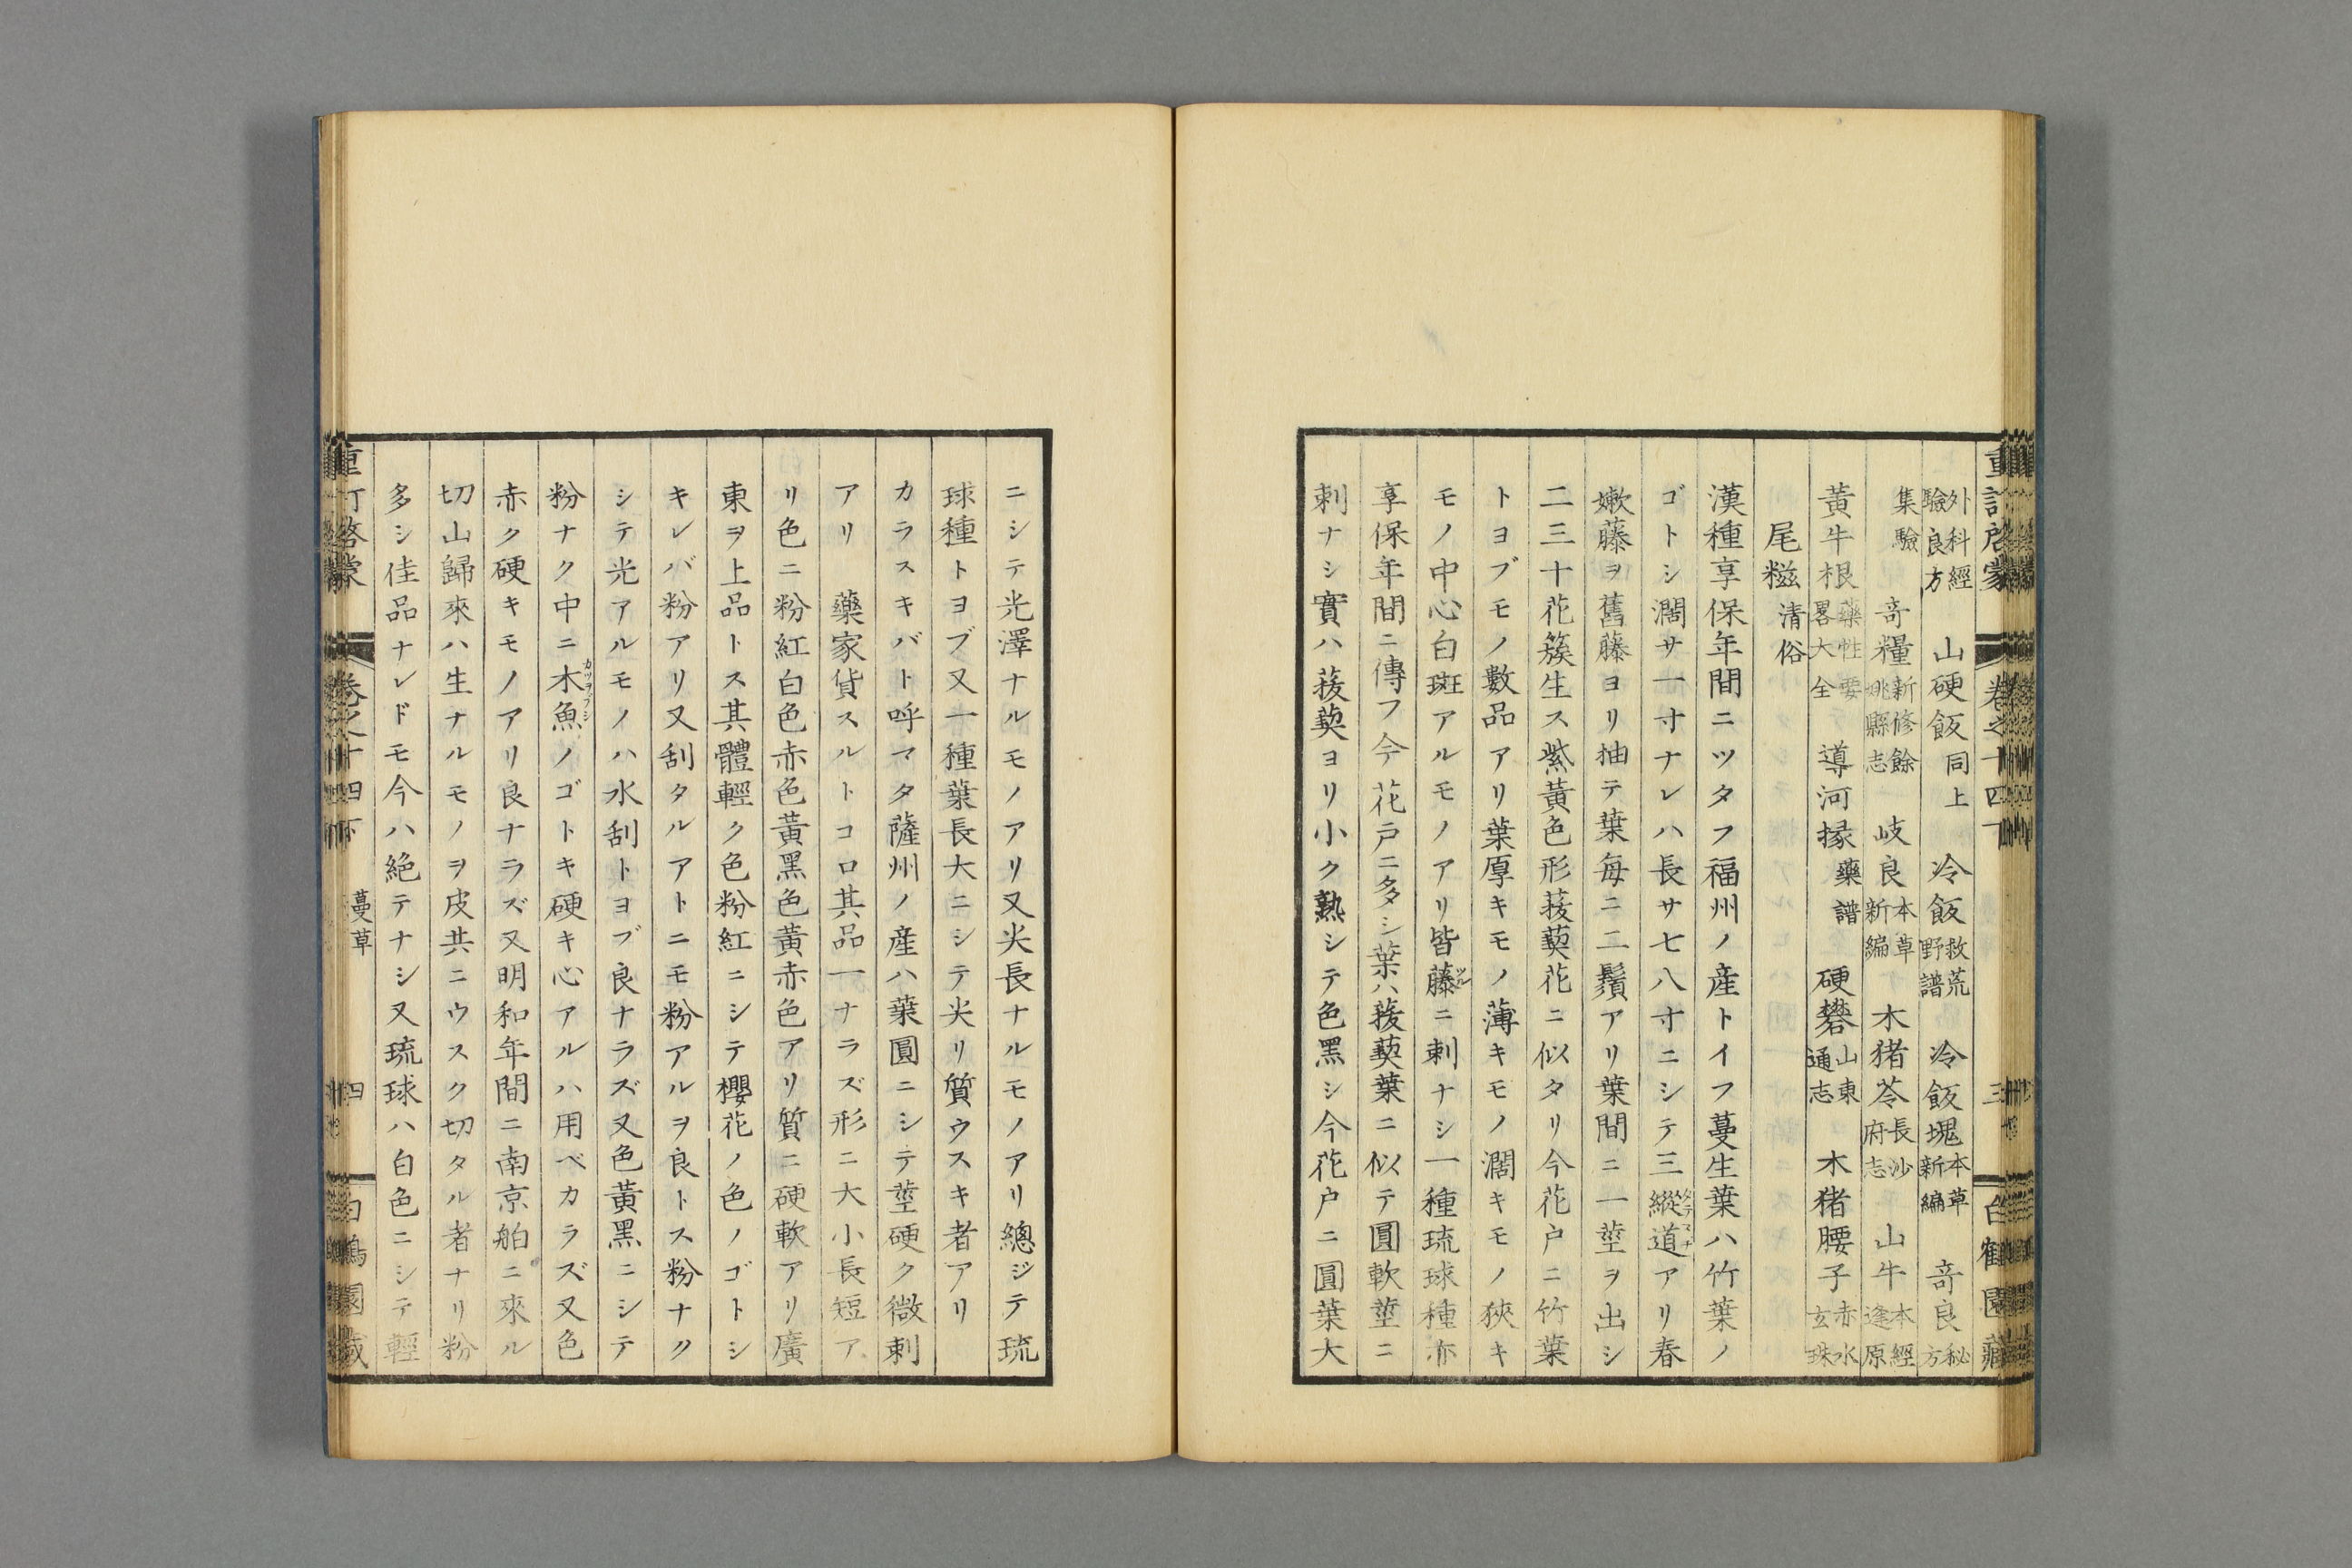 外科經驗良方 山硬飯同上 冷飯救荒野譜 冷飯塊本草新編 竒良秘方
集驗 竒糧新修餘姚縣志 岐良本草新編 木猪苓長沙府志 山牛本經逢原
黃牛根藥性要畧大全 導河掾藥譜 硬礬山東通志 木猪腰子赤水玄珠
尾糍清俗
漢種享保年間ニツタフ福州ノ産トイフ蔓生葉ハ竹葉ノ
ゴトシ濶サ一寸ナレハ長サ七八寸ニシテ三縱道アリ春
嫩藤ヲ舊藤ヨリ抽テ葉每ニ二鬚アリ葉間ニ一莖ヲ出シ
二三十花簇生ス紫黃色形菝葜花ニ似タリ今花戸ニ竹葉
トヨブモノ數品アリ葉厚キモノ薄キモノ濶キモノ狹キ
モノ中心白斑アルモノアリ皆藤ニ刺ナシ一種琉球種亦
享保年間ニ傳フ今花戸ニ多シ葉ハ菝葜葉ニ似テ圓軟莖ニ
刺ナシ實ハ菝葜ヨリ小ク熟シテ色黑シ今花戸ニ圓葉大
ニシテ光澤ナルモノアリ又尖長ナルモノアリ總ジテ琉
球種トヨブ又一種葉長大ニシテ尖リ質ウスキ者アリ
カラスキバト呼マタ薩州ノ産ハ葉圓ニシテ莖硬ク微刺
アリ 藥家貨スルトコロ其品一ナラズ形ニ大小長短ア
リ色ニ粉紅白色赤色黃黑色黃赤色アリ質ニ硬軟アリ廣
東ヲ上品トス其體輕ク色粉紅ニシテ櫻花ノ色ノゴトシ
キレバ粉アリ又刮タルアトニモ粉アルヲ良トス粉ナク
シテ光アルモノハ水刮トヨブ良ナラズ又色黃黑ニシテ
粉ナク中ニ木魚カツヲブシノゴトキ硬キ心アルハ用ベカラズ又色
赤ク硬キモノアリ良ナラズ又明和年間ニ南京舶ニ來ル
切山歸來ハ生ナルモノヲ皮共ニウスク切タル者ナリ粉
多シ佳品ナレドモ今ハ絶テナシ又琉球ハ白色ニシテ輕
蔓草